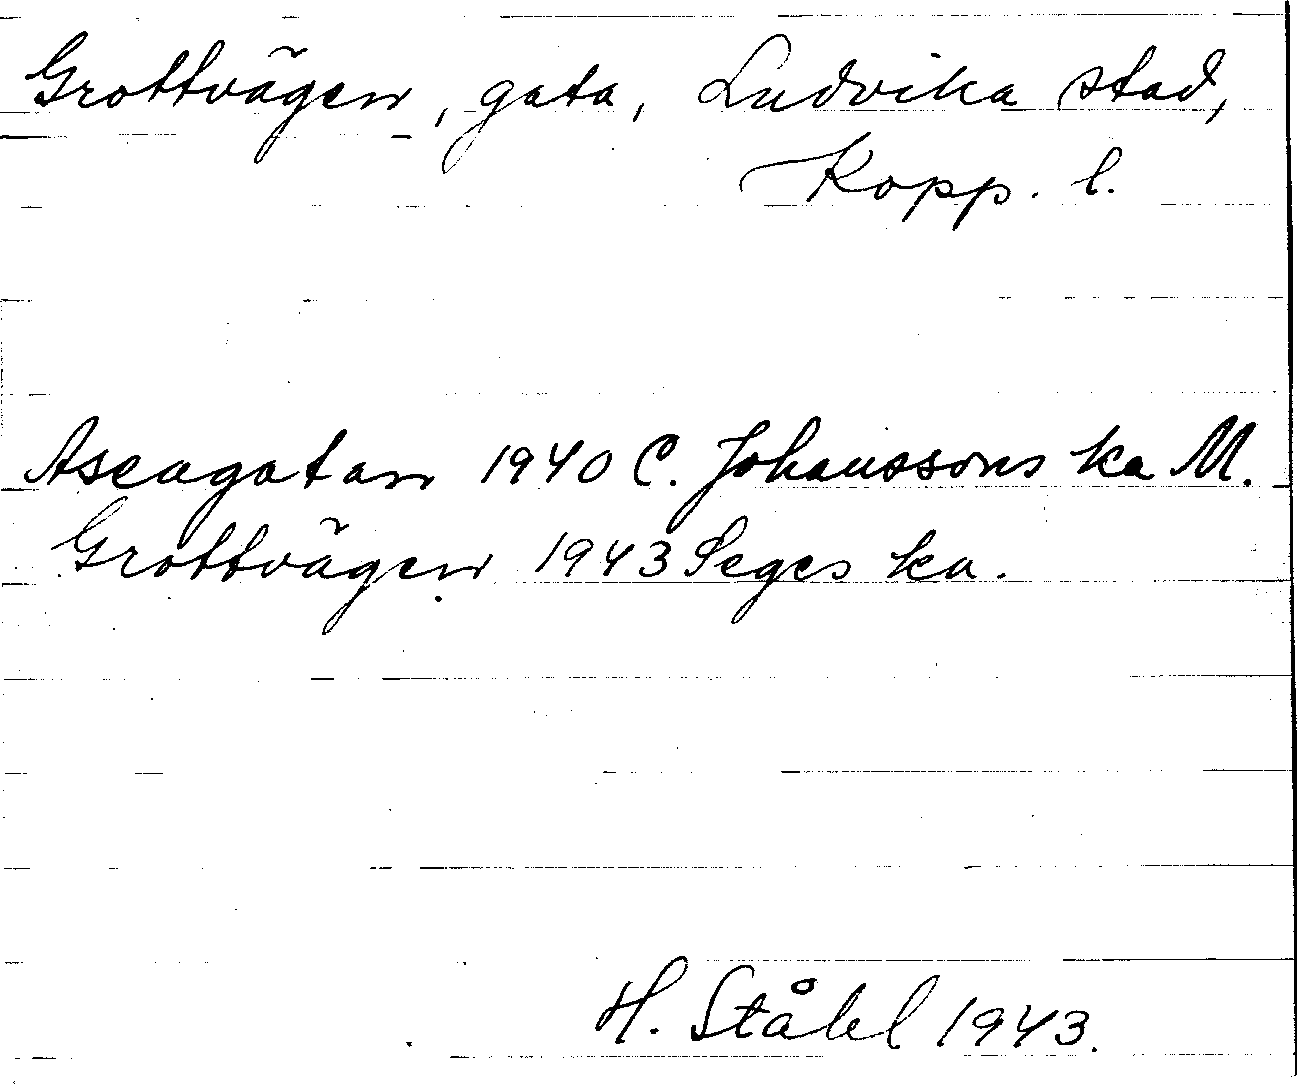 Grottvägen, gata, Ludvika stad,
Kopp. l.
Aseagatan 1940 C. Johanssons ka M.
Grottvägen 1943 Seges ka.
H. Ståhl 1943.